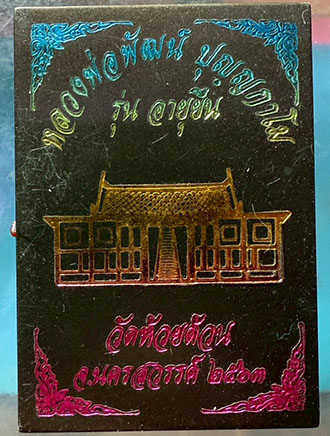 หลวงพ่อพัฒน์ ปุญฺญกาโม
รุ่น อายุยืน
วัดห้วยด้วน
จ.นครสวรรค์ ๒๕๖๓